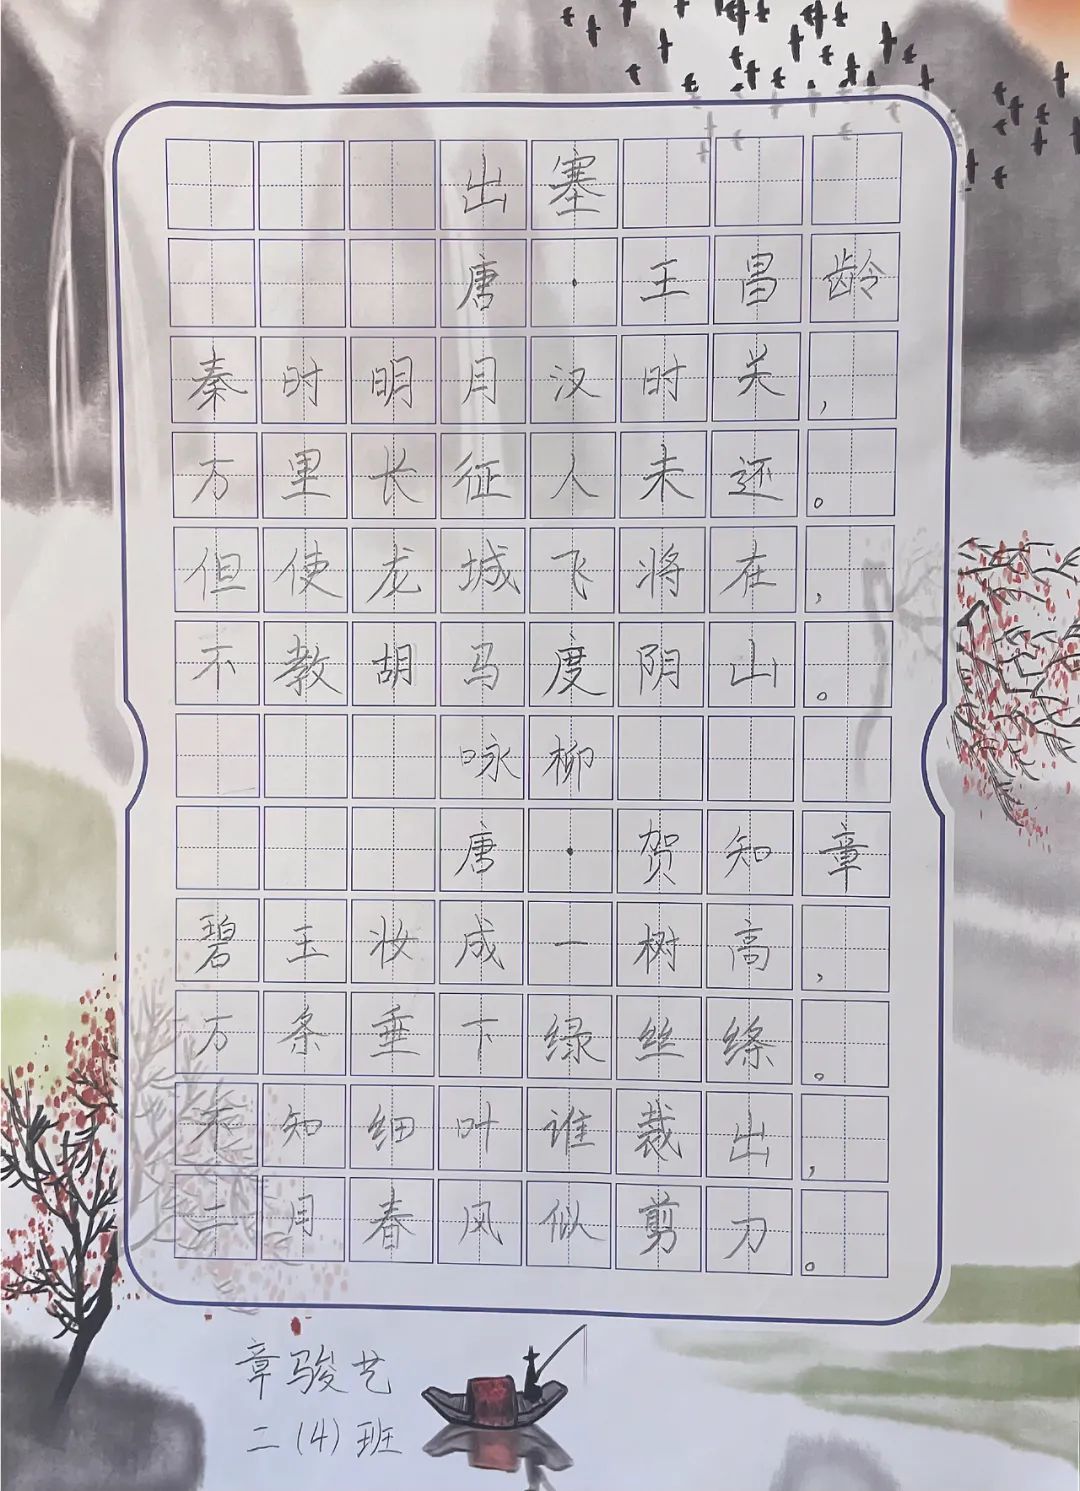 出塞
唐·王昌龄
秦时明月汉时关，
万里长征人未还。
但使龙城飞将在，
不教胡马度阴山。
咏柳
唐·贺知章
碧玉妆成一树高，
万条垂下绿丝绦。
不知细叶谁裁出，
二月春风似剪刀。
章骏艺
二(4)班